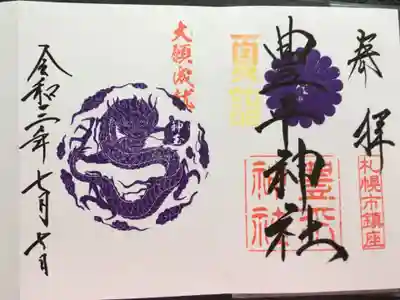 奉拝
札幌市鎮座
豊平神社
豊平
神社
大願成就
令和二年七月七日